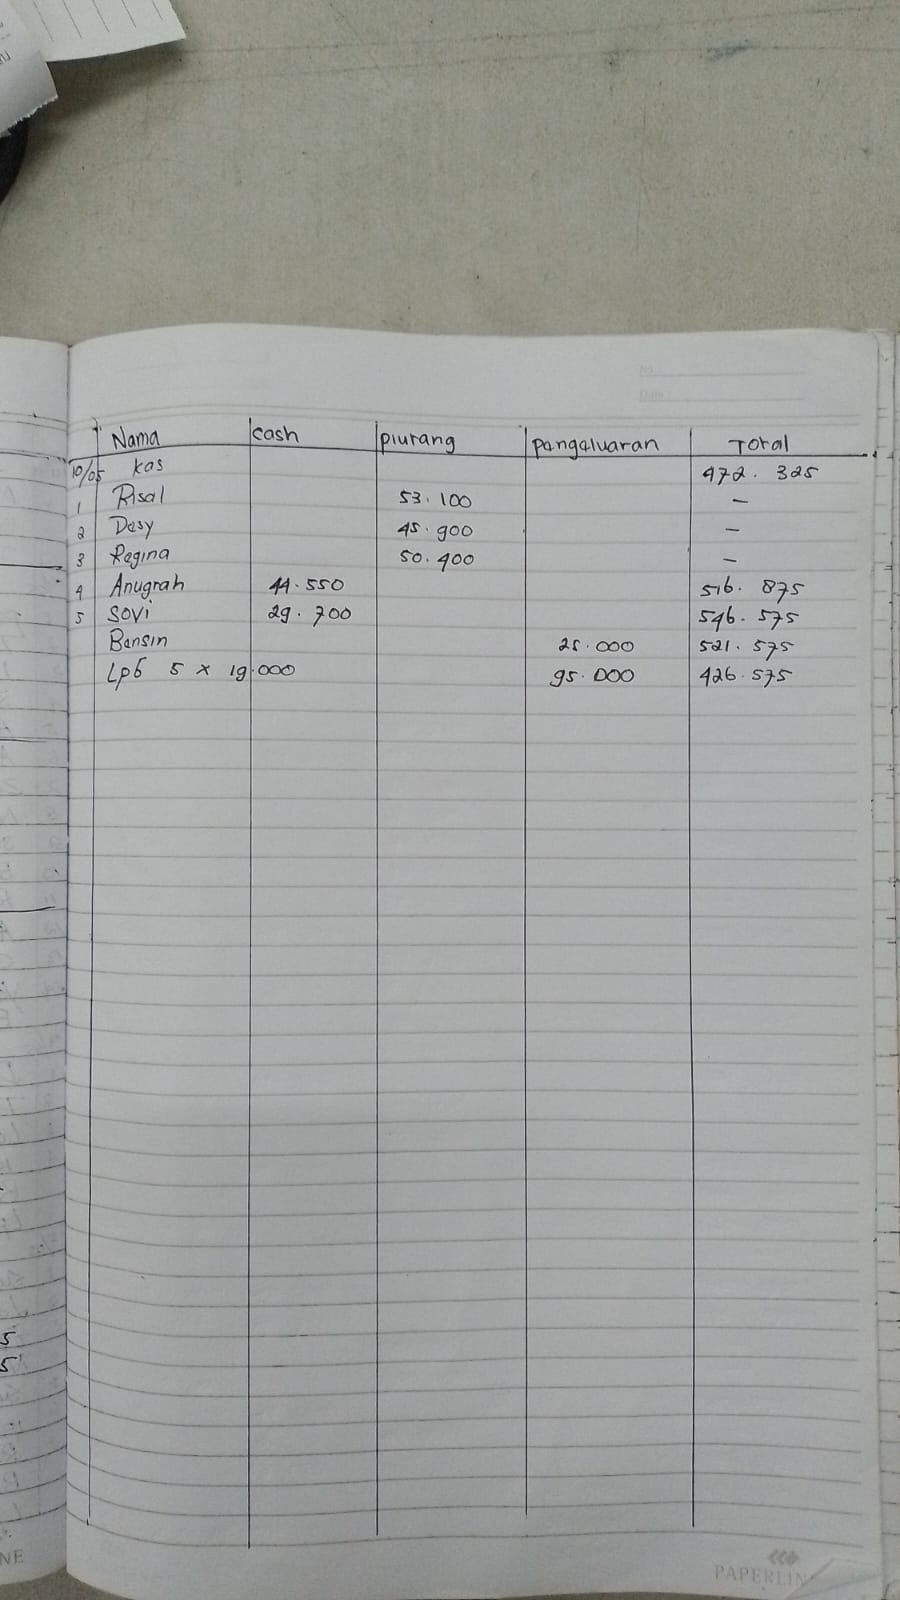 No.
Date :
Nama cash piutang pengeluaran Total
10/05 kas 472. 325
1 Risal 53. 100 -
2 Desy 45. 900 -
3 Regina 50. 400 -
4 Anugrah 44. 550 516. 875
5 Sovi 29. 700 546. 575
Bensin 25. 000 521. 575
5 x 19.000 95. 000 426. 575
5
5
NE
PAPERLINE